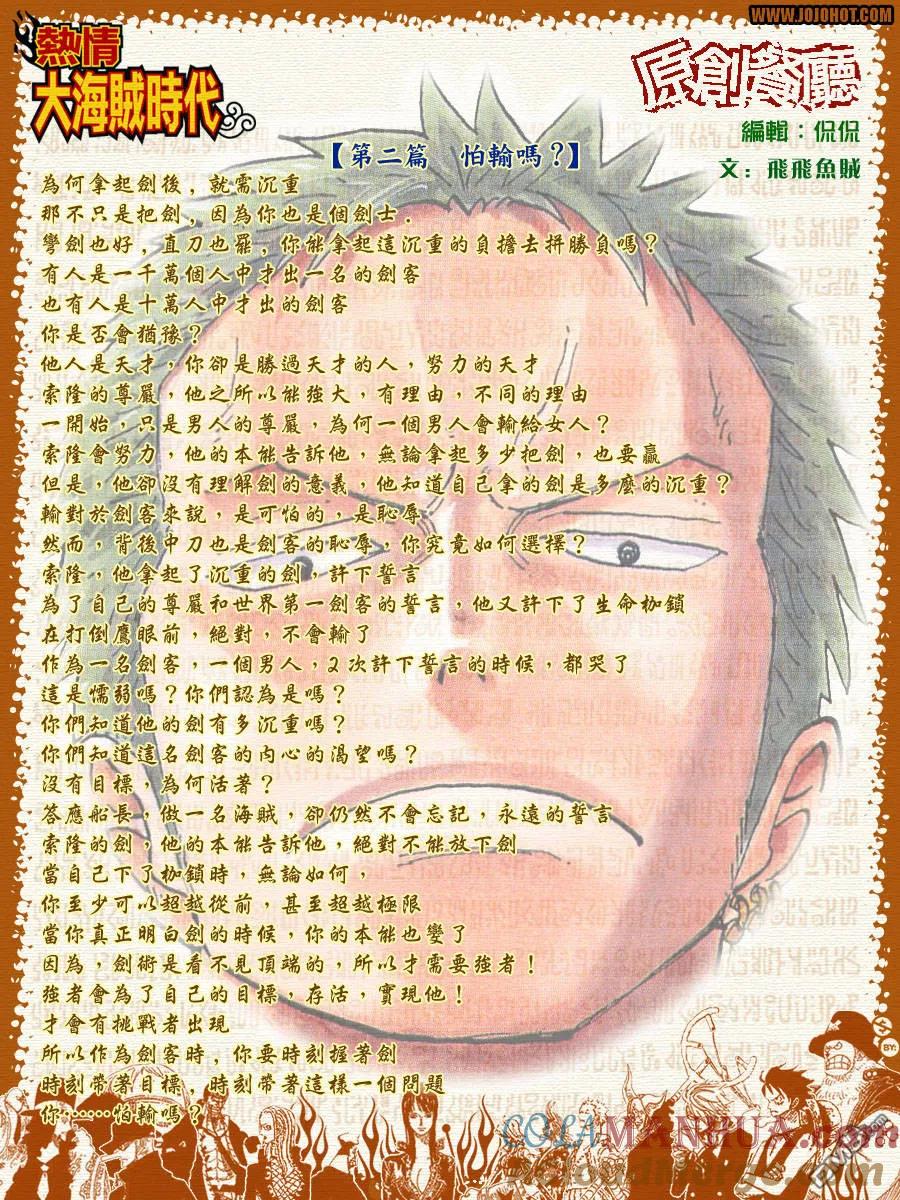 WWW.JOJOHOT.COM
熱情
大海賊時代
原創餐廳
編輯：侃侃
文：飛飛魚賊
【第二篇　怕輸嗎？】
為何拿起劍後，就需沉重
那不只是把劍，因為你也是個劍士.
彎劍也好，直刀也罷，你能拿起這沉重的負擔去拼勝負嗎？
有人是一千萬個人中才出一名的劍客
也有人是十萬人中才出的劍客
你是否會猶豫？
他人是天才，你卻是勝過天才的人，努力的天才
索隆的尊嚴，他之所以能強大，有理由，不同的理由
一開始，只是男人的尊嚴，為何一個男人會輸給女人？
索隆會努力，他的本能告訴他，無論拿起多少把劍，也要贏
但是，他卻沒有理解劍的意義，他知道自己拿的劍是多麼的沉重？
輸對於劍客來說，是可怕的，是恥辱
然而，背後中刀也是劍客的恥辱，你究竟如何選擇？
索隆，他拿起了沉重的劍，許下誓言
為了自己的尊嚴和世界第一劍客的誓言，他又許下了生命枷鎖
在打倒鷹眼前，絕對，不會輸了
作為一名劍客，一個男人，2次許下誓言的時候，都哭了
這是懦弱嗎？你們認為是嗎？
你們知道他的劍有多沉重嗎？
你們知道這名劍客的內心的渴望嗎？
沒有目標，為何活著？
答應船長，做一名海賊，卻仍然不會忘記，永遠的誓言
索隆的劍，他的本能告訴他，絕對不能放下劍
當自己下了枷鎖時，無論如何，
你至少可以超越從前，甚至超越極限
當你真正明白劍的時候，你的本能也變了
因為，劍術是看不見頂端的，所以才需要強者！
強者會為了自己的目標，存活，實現他！
才會有挑戰者出現
所以作為劍客時，你要時刻握著劍
時刻帶著目標，時刻帶著這樣一個問題
你……怕輸嗎？
BY:
COLAMANHUA.com